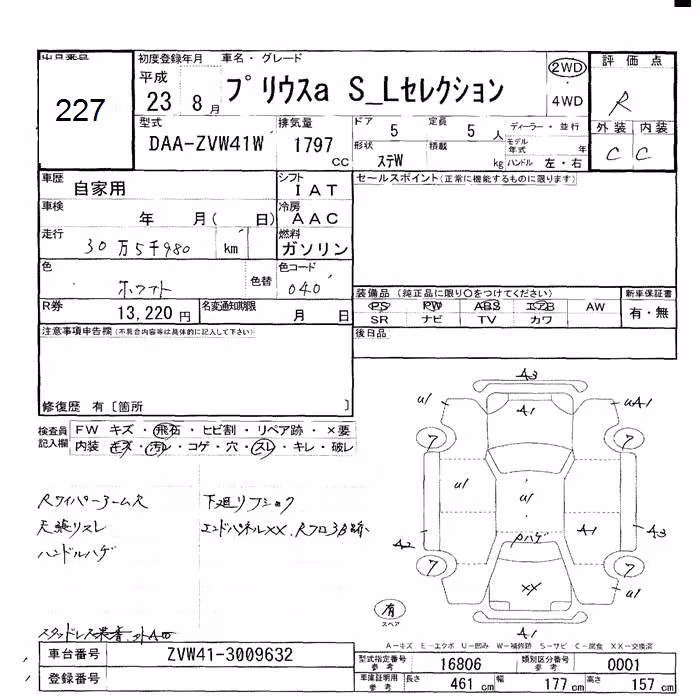 出品番号
227
初度登録年月 車名・グレード
平成
23 8月
プリウスa S_Lセレクション
2WD
4WD
評価点
R
外装 内装
C C
型式
DAA-ZVW41W
排気量
1797 cc
ドア 5
定員 5 人
ディーラー・並行
形状 ステW
積載 kg
モデル年式 年
ハンドル 左・右
車歴 自家用
シフト IAT
セールスポイント(正常に機能するものに限ります)
車検 年 月( 日)
冷房 AAC
走行 30万5千980 km
燃料 ガソリン
色 ホワイト
色替
色コード 040
装備品(純正品に限り○をつけてください)
新車保証書
PS PW ABS エアB AW
有・無
SR ナビ TV カワ
R券 13,220円
名変通知期限 月 日
注意事項申告欄(不具合内容等は具体的に記入して下さい)
後日品
修復歴 有〔箇所 〕
検査員記入欄
FW キズ・飛石・ヒビ割・リペア跡・×要
内装 キズ・汚レ・コゲ・穴・スレ・キレ・破レ
Rワイパーアームサ
下廻リフショク
天張リスレ
エンドパネルXX、Rフロア跡
ハンドルハゲ
スタッドレス装着
A3
U1 A1 UA1
7 7
U1 U1 A1
A2 A3
Pハゲ
7 7
XX
A1
有
スペア
A-キズ E-エクボ U-凹み W-補修跡 S-サビ C-腐食 XX-交換済
車台番号 ZVW41-3009632
登録番号
型式指定番号 参考 16806
類別区分番号 参考 0001
車庫証明用 参考 長さ 461 cm 幅 177 cm 高さ 157 cm